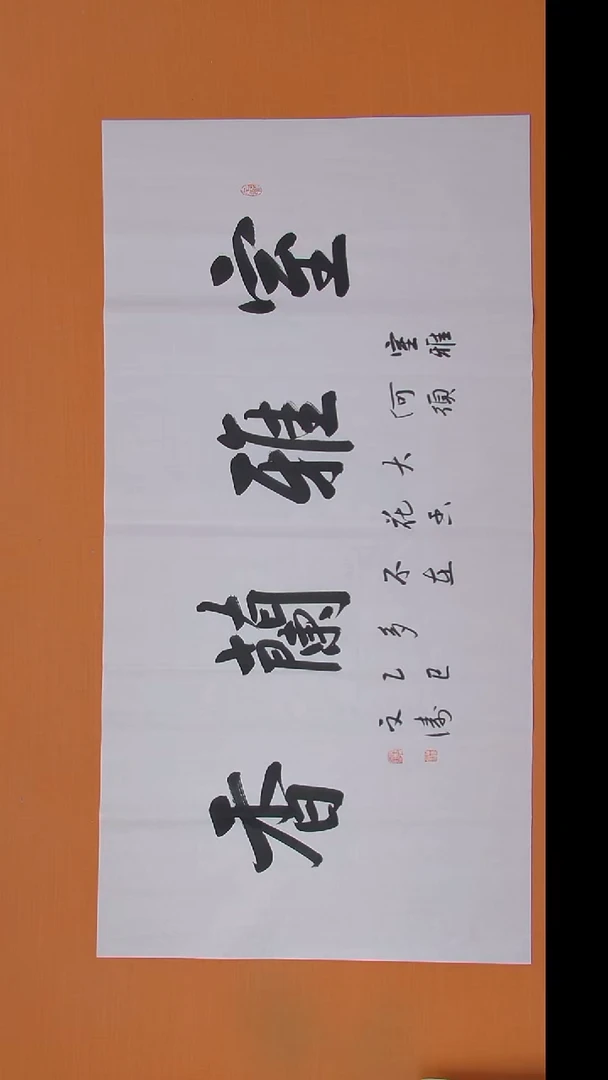 室雅蘭香
室雅
何須
大
花香
不在
多
乙巳
文濤